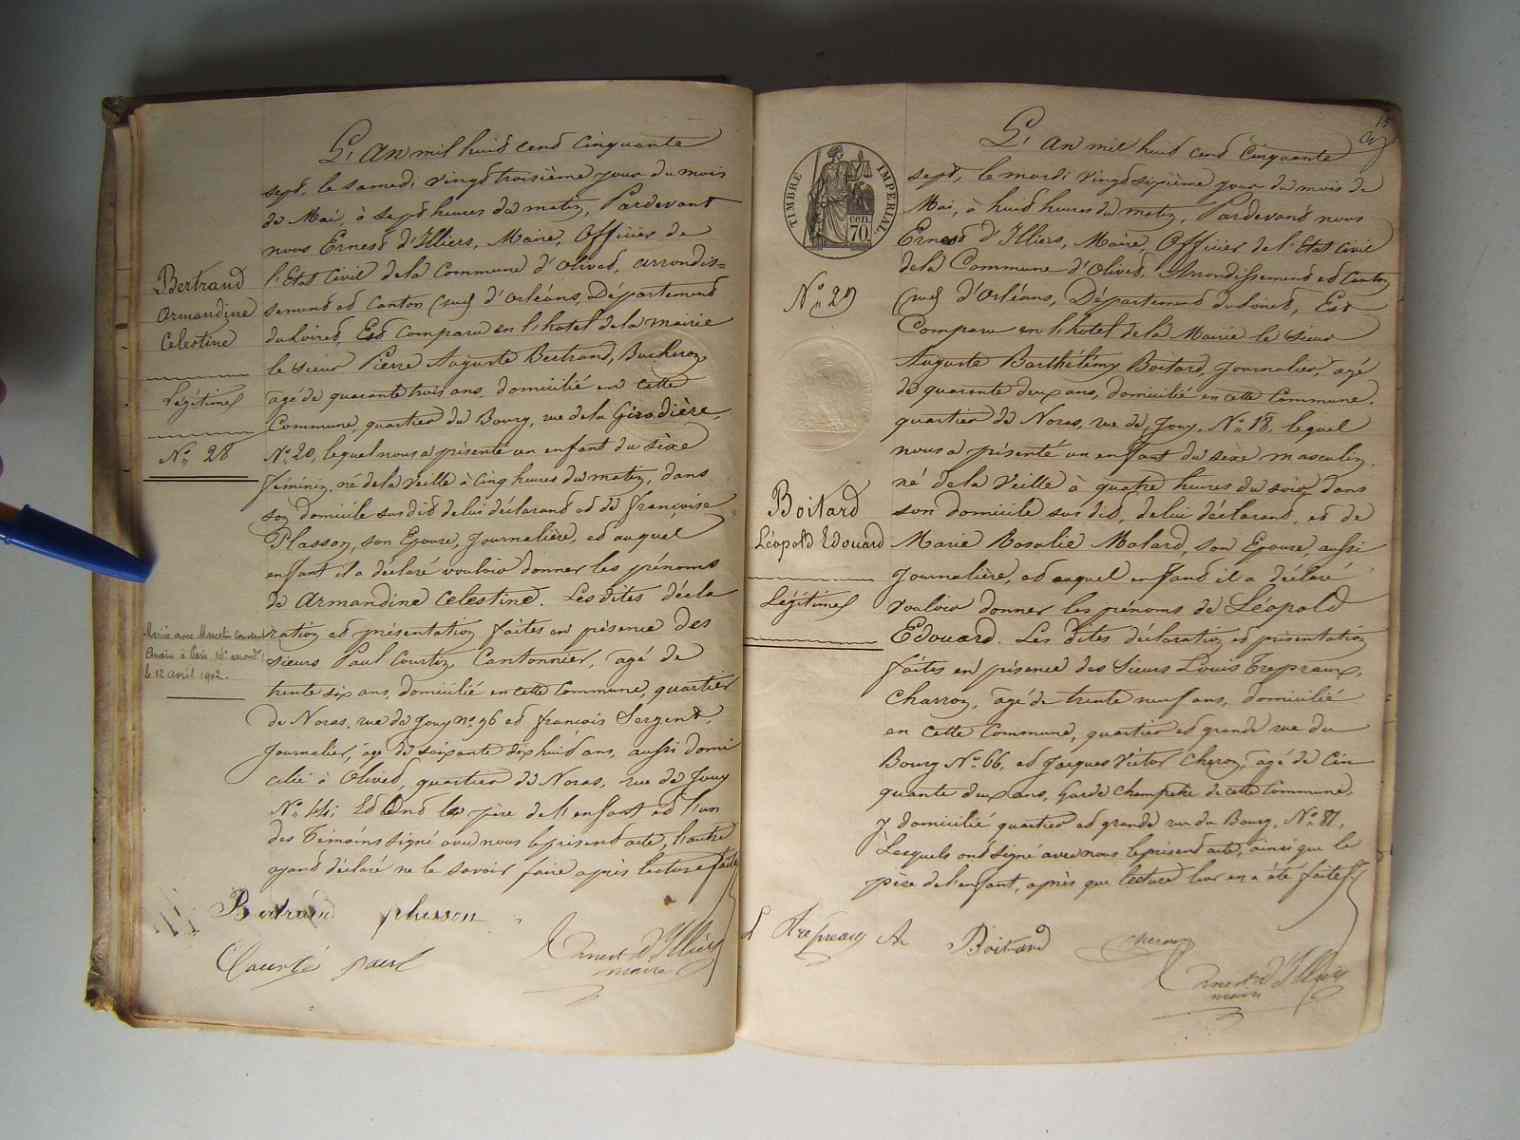 Bertrand
Armandine
Celestine
Légitime
N° 28
Marié avec Marcelin
à Paris
le 12 avril 1902.
L'An mil huit cent cinquante
sept, le samedi vingt troisième jour du mois
de Mai, à sept heures du matin, Pardevant
nous Ernest d'Illiers, Maire, Officier de
l'Etat Civil de la Commune d'Olivet, arrondis=
sement et Canton (sud) d'Orléans, Département
du Loiret, Est comparu en l'hôtel de la mairie
le sieur Pierre Auguste Bertrand, Bucheron
agé de quarante trois ans, domicilié en cette
Commune, quartier du Bourg, rue de la Girodière,
N° 20, lequel nous a présenté un enfant du sèxe
féminin, né de la veille à cinq heures du matin, dans
son domicile sus dit de lui déclarant et de françoise
Plasson, son Epouse, Journalière, et auquel
enfant il a déclaré vouloir donner les prénoms
de Armandine Celestine. Les dites décla
ration et présentation faites en présence des
sieurs Paul Courtin, Cantonnier, agé de
trente six ans, domicilié en cette Commune, quartier
de Noras, rue de Jouy n° 96 et françois Sergent,
Journalier, agé de soixante dix huit ans, aussi domi
cilié à Olivet, quartier de Noras, rue de Jouy
N° 44; Et Ont le père de l'enfant et l'un
des Témoins signé avec nous le présent acte, l'autre
ayant déclaré ne le savoir faire après lecture faite
Bertrand plusson
Courté paul
Ernest d'Illiers
maire
15
TIMBRE IMPERIAL
70 cen.
N° 29
Boitard
Léopold Edouard
Légitime
L'An mil huit cent cinquante
sept, le mardi vingt sixième jour du mois de
Mai, à huit heures du matin, Pardevant nous
Ernest d'Illiers, Maire, Officier de l'Etat Civil
de la Commune d'Olivet, Arrondissement et Canton
(sud) d'Orléans, Département du Loiret, Est
Comparu en l'hôtel de la Mairie le sieur
Auguste Barthélémy Boitard, Journalier, agé
de quarante deux ans, domicilié en cette Commune,
quartier de Noras, rue de Jouy, N° 18, lequel
nous a présenté un enfant du sèxe masculin,
né de la veille à quatre heures du soir dans
son domicile sus dit, de lui déclarant, et de
Marie Rosalie Malard, son Epouse, aussi
Journalière, et auquel enfant il a déclaré
vouloir donner les prénoms de Léopold
Edouard. Les dites déclaration et présentation
faites en présence des Sieurs Louis Trepreaux,
Charron, agé de trente neuf ans, domicilié
en cette Commune, quartier et grande rue du
Bourg N° 66, et Jacques Victor Cheron, agé de Cin
quante deux ans, Garde Champetre de cette Commune,
y domicilié quartier et grande rue du Bourg, N° 87,
Lesquels ont signé avec nous le présent acte, ainsi que le
père de l'enfant, après que lecture leur en a été faite
L Trepreau A Boitard Cheron
Ernest d'Illiers
maire